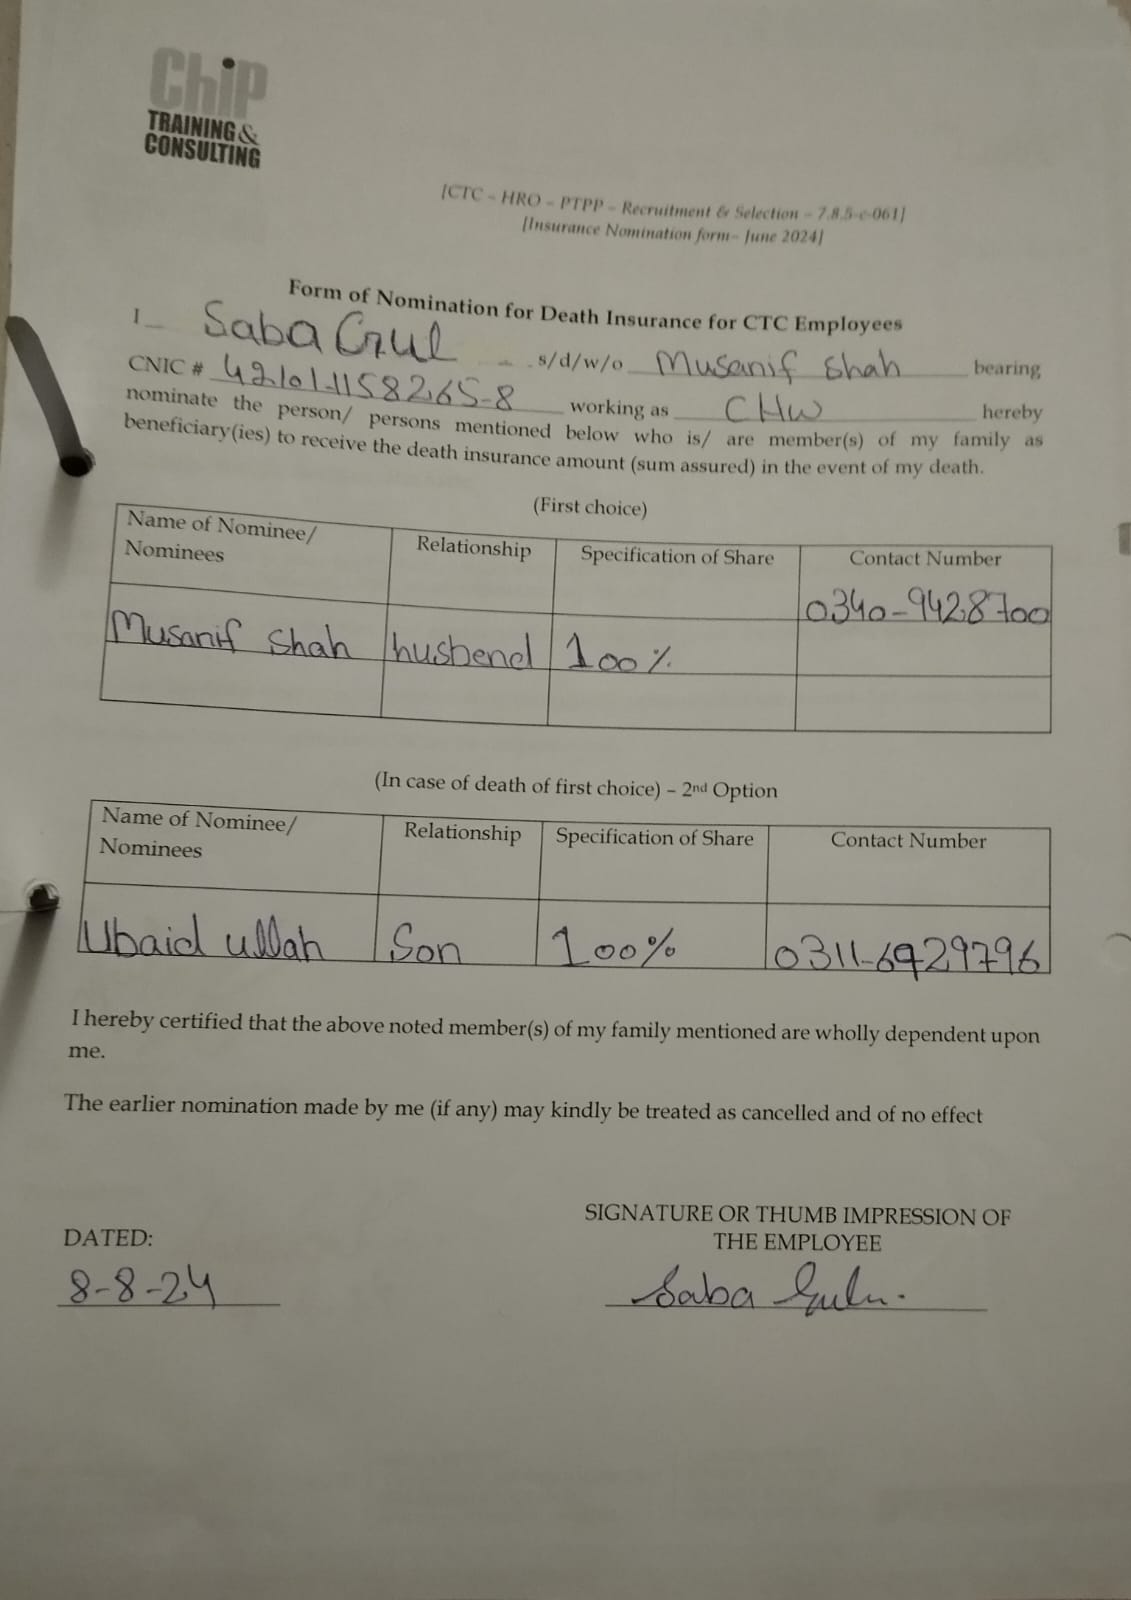 Chip
TRAINING &
CONSULTING
[CTC – HRO – PTPP – Recruitment & Selection – 7.8.5-c-061]
[Insurance Nomination form– June 2024]
Form of Nomination for Death Insurance for CTC Employees
I Saba Gul s/d/w/o Musanif Shah bearing
CNIC # 42101-1158265-8 working as CHW hereby
nominate the person/ persons mentioned below who is/ are member(s) of my family as
beneficiary(ies) to receive the death insurance amount (sum assured) in the event of my death.
(First choice)
Name of Nominee/ Relationship Specification of Share Contact Number
Nominees
0340-9428700
Musanif Shah husbend 100%
(In case of death of first choice) – 2nd Option
Name of Nominee/ Relationship Specification of Share Contact Number
Nominees
Ubaid ullah Son 100% 0311-6929796
I hereby certified that the above noted member(s) of my family mentioned are wholly dependent upon
me.
The earlier nomination made by me (if any) may kindly be treated as cancelled and of no effect
SIGNATURE OR THUMB IMPRESSION OF
DATED: THE EMPLOYEE
8-8-24 Saba Gul